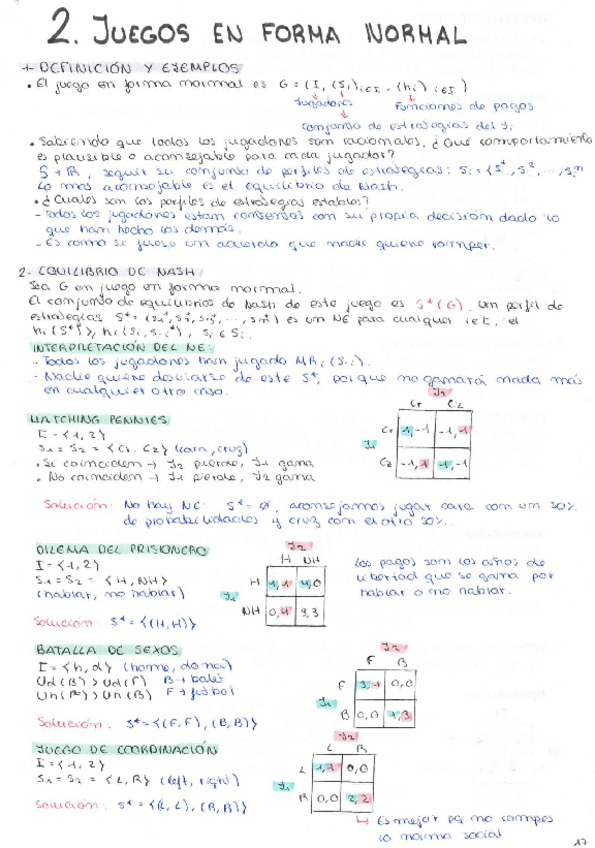 2. JUEGOS EN FORMA NORMAL
1- DEFINICIÓN Y EJEMPLOS
• El juego en forma normal es G = (I, (Si)i∈I, (hi)i∈I)
Jugadores
Funciones de pagos
Conjunto de estrategias del Ji
• Sabiendo que todos los jugadores son racionales, ¿Qué comportamiento
es plausible o aconsejable para cada jugador?
seguir su conjunto de perfiles de estrategias:
Lo más aconsejable es el equilibrio de Nash.
• ¿Cuáles son los perfiles de estrategias estables?
- Todos los jugadores están contentos con su propia decisión dado lo
que han hecho los demás.
- Es como si fuese un acuerdo que nadie quiere romper.
2- EQUILIBRIO DE NASH
Sea G un juego en forma normal.
El conjunto de equilibrios de Nash de este juego es S*(G). Un perfil de
estrategias es un NE para cualquier i∈I, el
INTERPRETACIÓN DEL NE:
- Todos los jugadores han jugado MRi(S-i).
- Nadie quiere desviarse de este S*, porque no ganará nada más
en cualquier otro caso.
MATCHING PENNIES
I = {1, 2}
S1 = S2 = {Cr, Cz} (cara, cruz)
• Si coinciden → J2 pierde, J1 gana
• No coinciden → J1 pierde, J2 gana
J2
Cr Cz
J1
Cr 1,-1 -1,1
Cz -1,1 1,-1
Solución: No hay NE: S* = ∅, aconsejamos jugar cara con un 50%
de probabilidades y cruz con el otro 50%.
DILEMA DEL PRISIONERO
I = {1, 2}
S1 = S2 = {H, NH}
(hablar, no hablar)
Solución: S* = {(H,H)}
J2
H NH
J1
H 1,1 4,0
NH 0,4 3,3
Los pagos son los años de
libertad que se gana por
hablar o no hablar.
BATALLA DE SEXOS
I = {h, d} (home, dona)
Ud(B) > Ud(F) B → ballet
Uh(F) > Uh(B) F → futbol
Solución: S* = {(F,F), (B,B)}
J2
F B
J1
F 3,1 0,0
B 0,0 1,3
JUEGO DE COORDINACIÓN
I = {1, 2}
S1 = S2 = {L, R} (left, right)
Solución: S* = {(L, L), (R, R)}
J2
L R
J1
L 1,1 0,0
R 0,0 2,2
Es mejor pq no rompes
la norma social
17